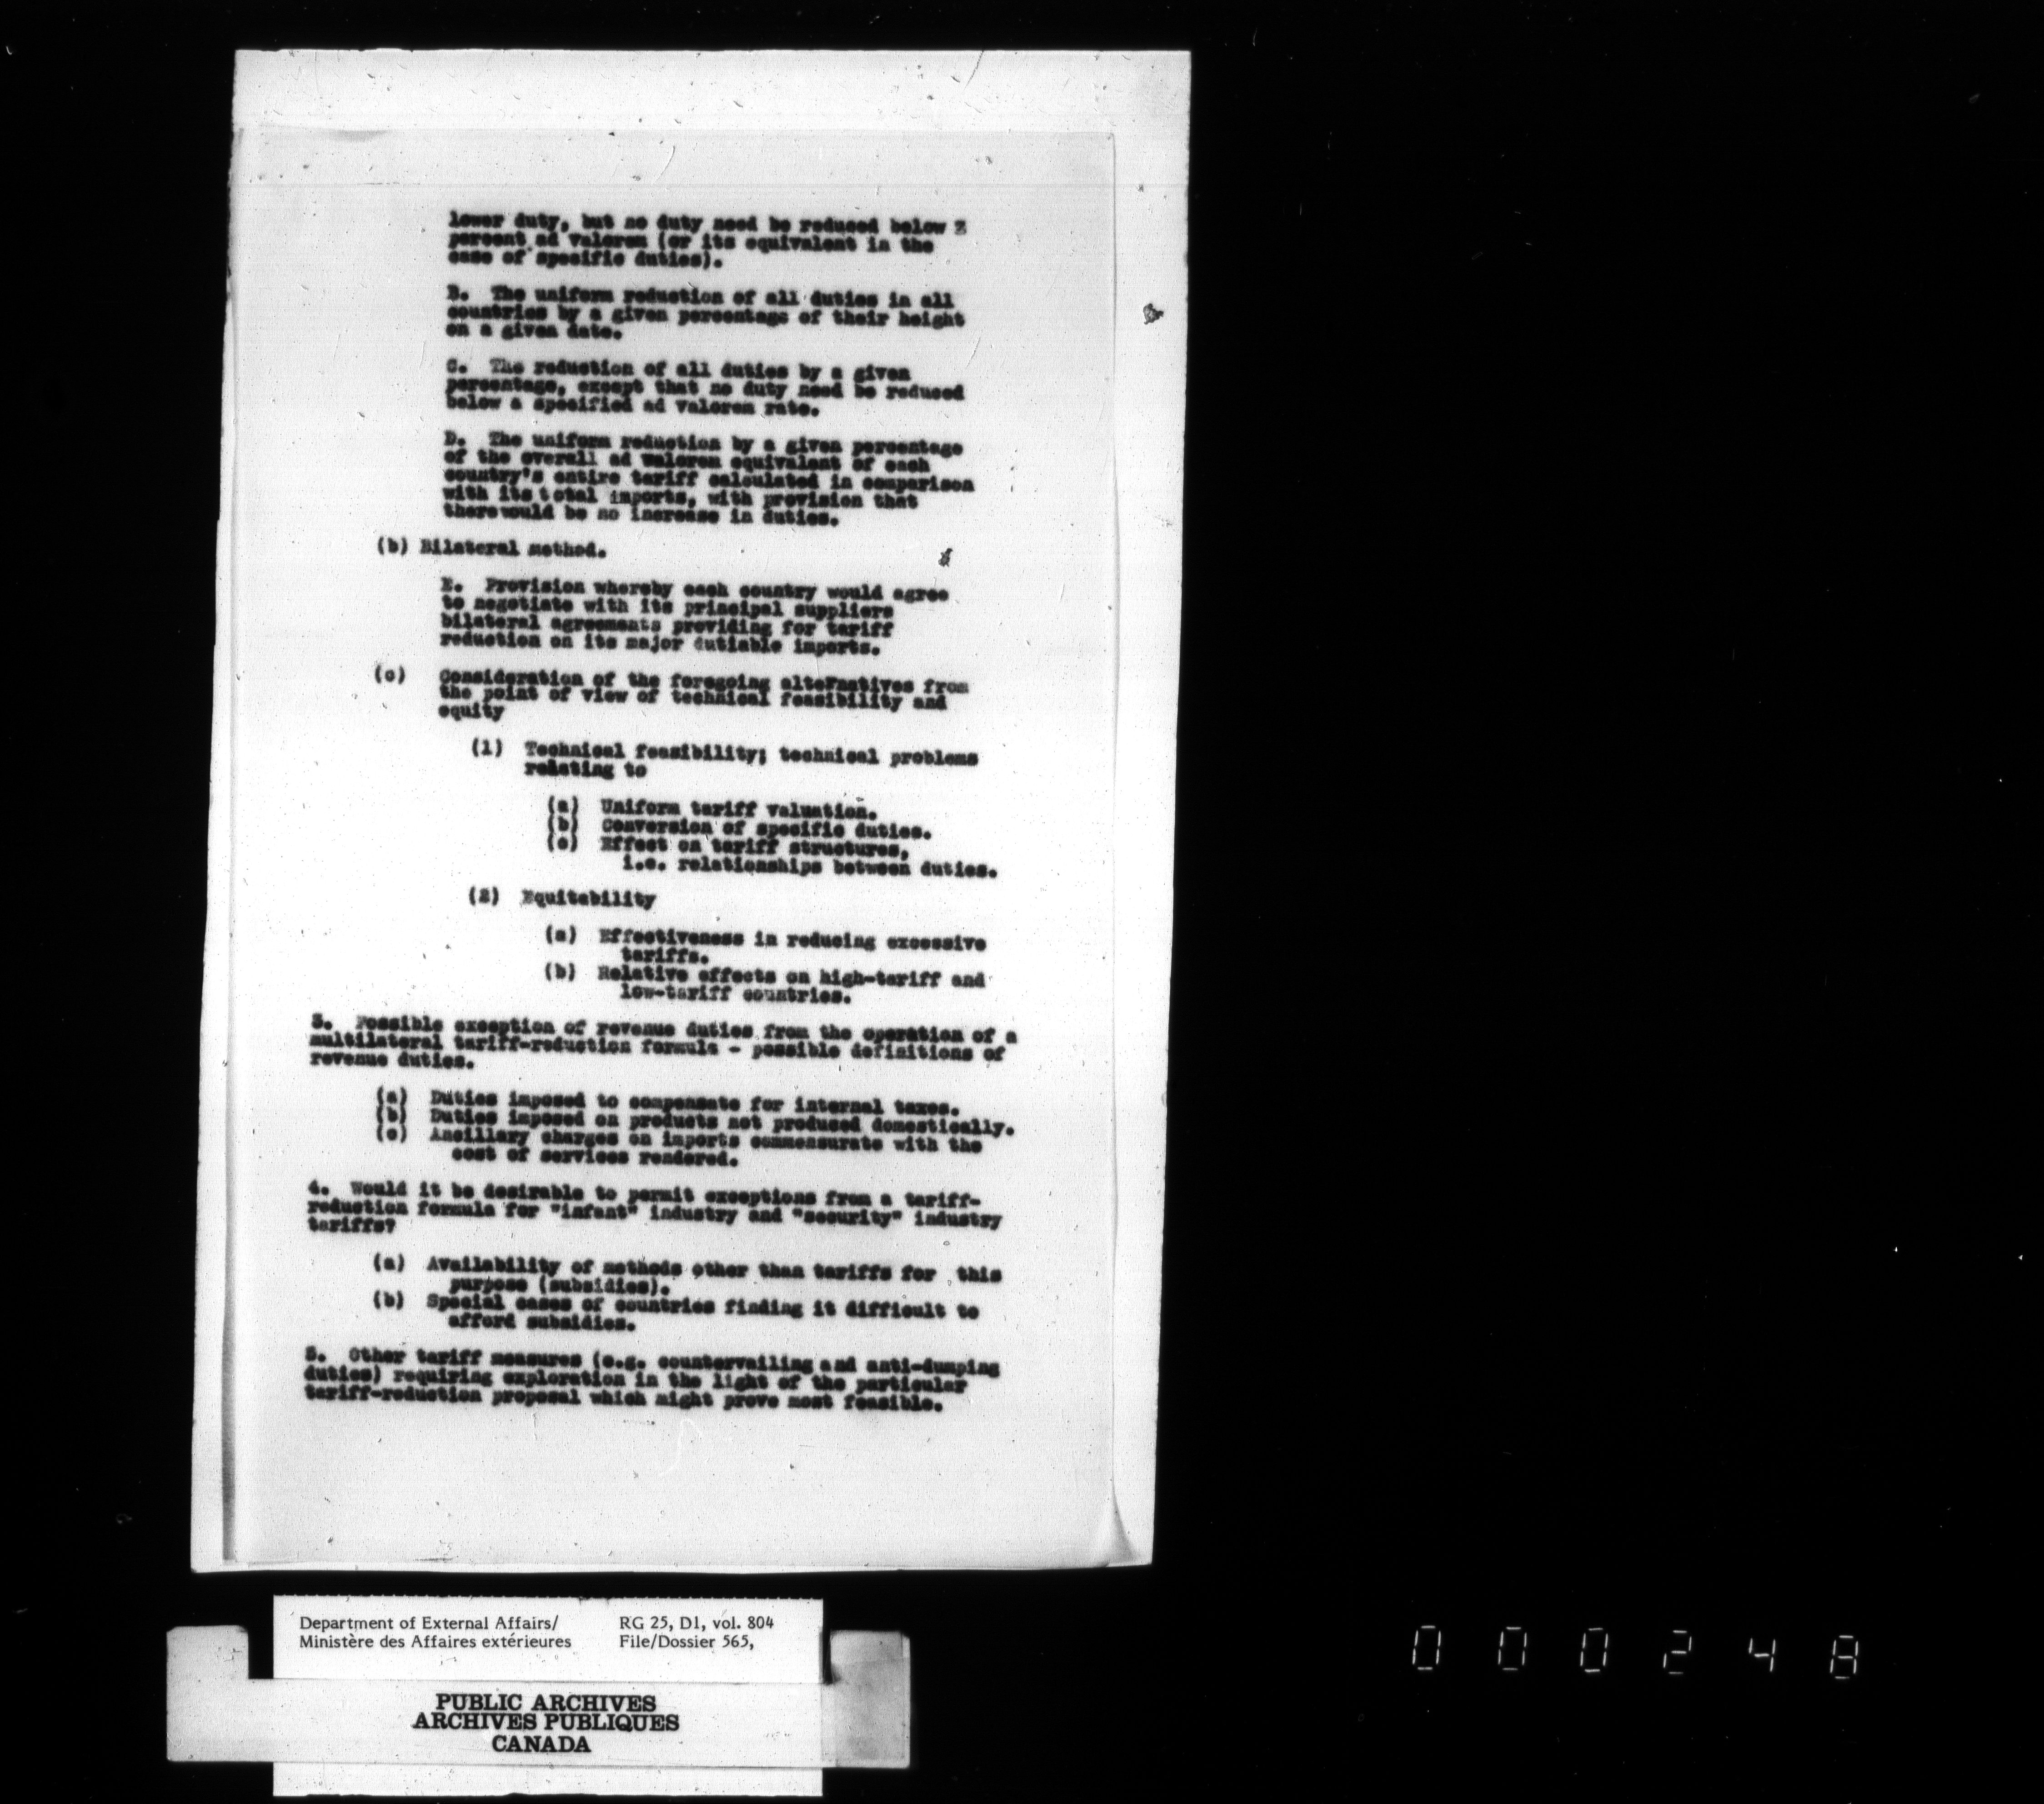 lower duty, but no duty need be reduced below
percent ad valorem (or its equivalent in the
case of specific duties).
B. The uniform reduction of all duties in all
countries by a given percentage of their height
on a given date.
C. The reduction of all duties by a given
percentage, except that no duty need be reduced
below a specified ad valorem rate.
D. The uniform reduction by a given percentage
of the overall ad valorem equivalent of each
country's entire tariff calculated in comparison
with its total imports, with provision that
there would be no increase in duties.
(b) Bilateral method.
E. Provision whereby each country would agree
to negotiate with its principal suppliers
bilateral agreements providing for tariff
reduction on its major dutiable imports.
(c) Consideration of the foregoing alternatives from
the point of view of technical feasibility and
equity
(1) Technical feasibility; technical problems
relating to
(a) Uniform tariff valuation.
(b) Conversion of specific duties.
(c) Effect on tariff structures,
i.e. relationships between duties.
(2) Equitability
(a) Effectiveness in reducing excessive
tariffs.
(b) Relative effects on high-tariff and
low-tariff countries.
3. Possible exception of revenue duties from the operation of a
multilateral tariff-reduction formula - possible definitions of
revenue duties.
(a) Duties imposed to compensate for internal taxes.
(b) Duties imposed on products not produced domestically.
(c) Ancillary charges on imports commensurate with the
cost of services rendered.
4. Would it be desirable to permit exceptions from a tariff-
reduction formula for "infant" industry and "security" industry
tariffs?
(a) Availability of methods other than tariffs for this
purpose (subsidies).
(b) Special cases of countries finding it difficult to
afford subsidies.
5. Other tariff measures (e.g. countervailing and anti-dumping
duties) requiring exploration in the light of the particular
tariff-reduction proposal which might prove most feasible.
Department of External Affairs/ RG 25, D1, vol. 804
Ministère des Affaires extérieures File/Dossier 565,
PUBLIC ARCHIVES
ARCHIVES PUBLIQUES
CANADA
000248